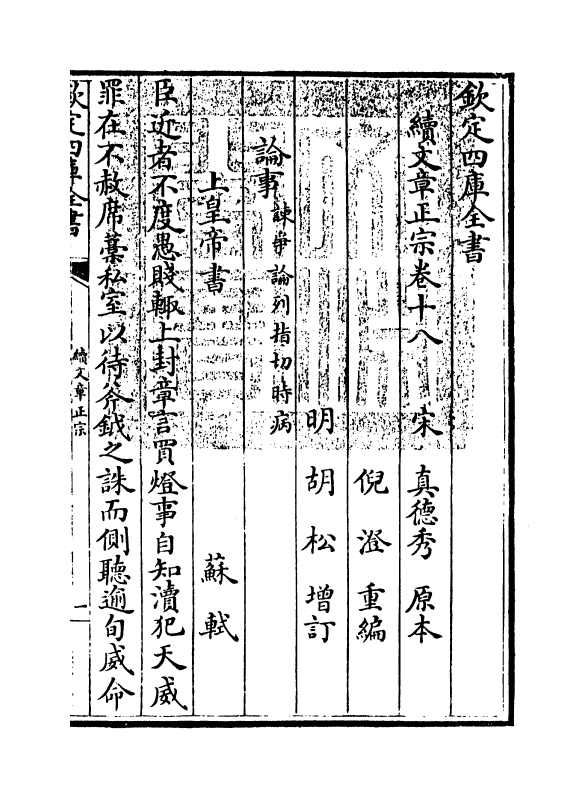 欽定四庫全書
續文章正宗卷十八
宋 真德秀 原本
倪澄 重編
明 胡松 增訂
論事 諫爭論列指切時病
上皇帝書 蘇軾
臣近者不度愚賤輙上封章言買燈事自知瀆犯天威
罪在不赦席藁私室以待斧鉞之誅而側聽逾旬威命
欽定四庫全書
續文章正宗
一